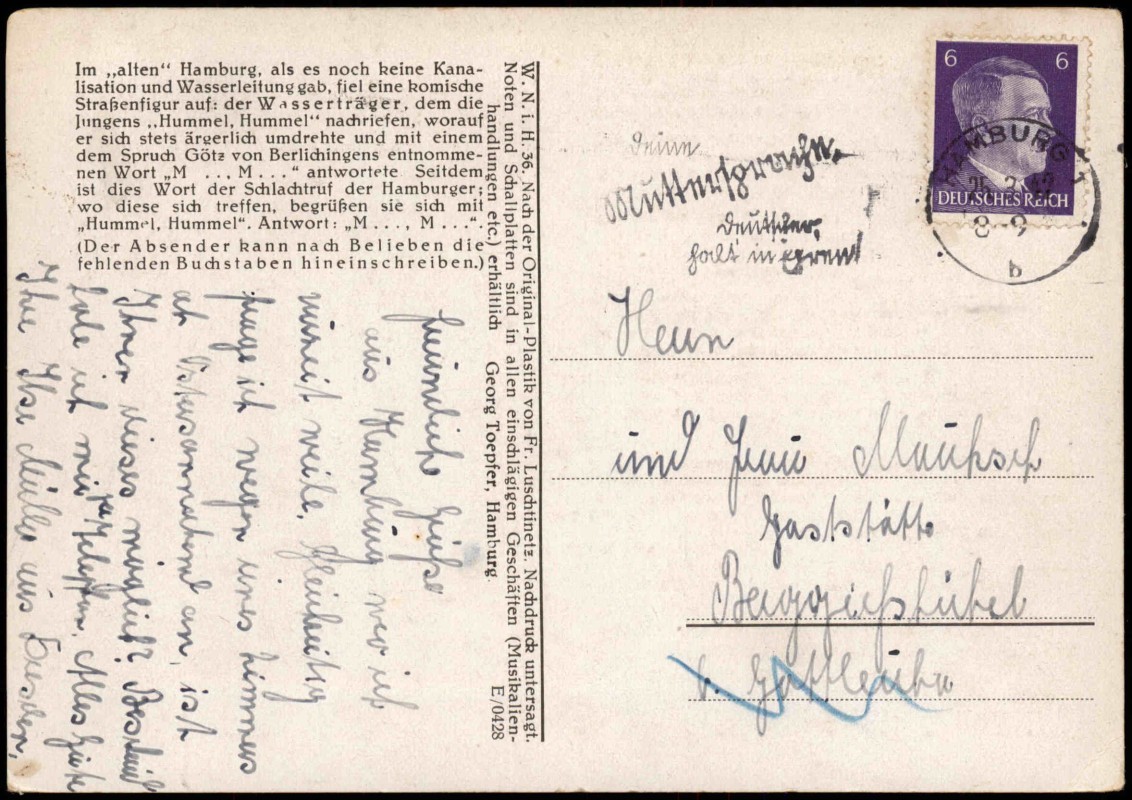 Im „alten“ Hamburg, als es noch keine Kana-
lisation und Wasserleitung gab, fiel eine komische
Straßenfigur auf: der Wasserträger, dem die
Jungens „Hummel, Hummel“ nachriefen, worauf
er sich stets ärgerlich umdrehte und mit einem
dem Spruch Götz von Berlichingens entnomme-
nen Wort „M . . ., M . . .“ antwortete Seitdem
ist dies Wort der Schlachtruf der Hamburger;
wo diese sich treffen, begrüßen sie sich mit
„Hummel, Hummel“. Antwort: „M . . ., M . . .“.
(Der Absender kann nach Belieben die
fehlenden Buchstaben hineinschreiben.)
W. N. i. H. 36. Nach der Original-Plastik von Fr. Luschtinetz. Nachdruck untersagt.
Noten und Schallplatten sind in allen einschlägigen Geschäften (Musikalien-
handlungen etc.) erhältlich Georg Toepfer, Hamburg E/0428
Grüße
aus Hamburg wo ich
zurzeit weile. Gleichzeitig
frage ich wegen eines Zimmers
ab an, ist
Ihnen dieses möglich? Bescheid
hole ich mir p. Telefon. Alles Gute
Ihre Ilse Müller aus Dresden.
Deine
Muttersprache,
Deutscher,
halt in Ehren!
6 6
DEUTSCHES REICH
HAMBURG 1
8-9
b
Herrn
und Frau Mauksch
Gaststätte
Berggießhübel
b. Gottleuba